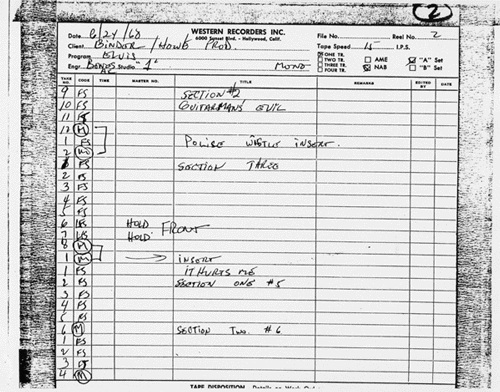 2
WESTERN RECORDERS INC.
6000 Sunset Blvd. - Hollywood, Calif.
Date 6/24/68 File No. Reel No. 2
Client BINDER/HOWE PROD. Tape Speed I.P.S.
Program ELVIS
ONE TR. TWO TR. THREE TR. FOUR TR. AME NAB "A" Set "B" Set
Engr. Studio "1" MONO
TAKE NO. CODE TIME MASTER NO. TITLE REMARKS EDITED BY DATE
9 FS SECTION #2
10 FS GUITARMAN'S EVIL
11 FS
12 M
1 FS POLISE WHSTLE INSERT.
2 MS
1 FS SECTION THREE
2 FS
3 FS
4 FS
5 FS
6 LFS HOLD FRONT
7 LFS HOLD
8 M
1 M INSERT
1 FS IT HURTS ME
2 FS SECTION ONE #5
3 FS
4 FS
5 FS
6 M SECTION TWO. #6
1 FS
2 FS
3 FS
4 M
TAPE DISPOSITION